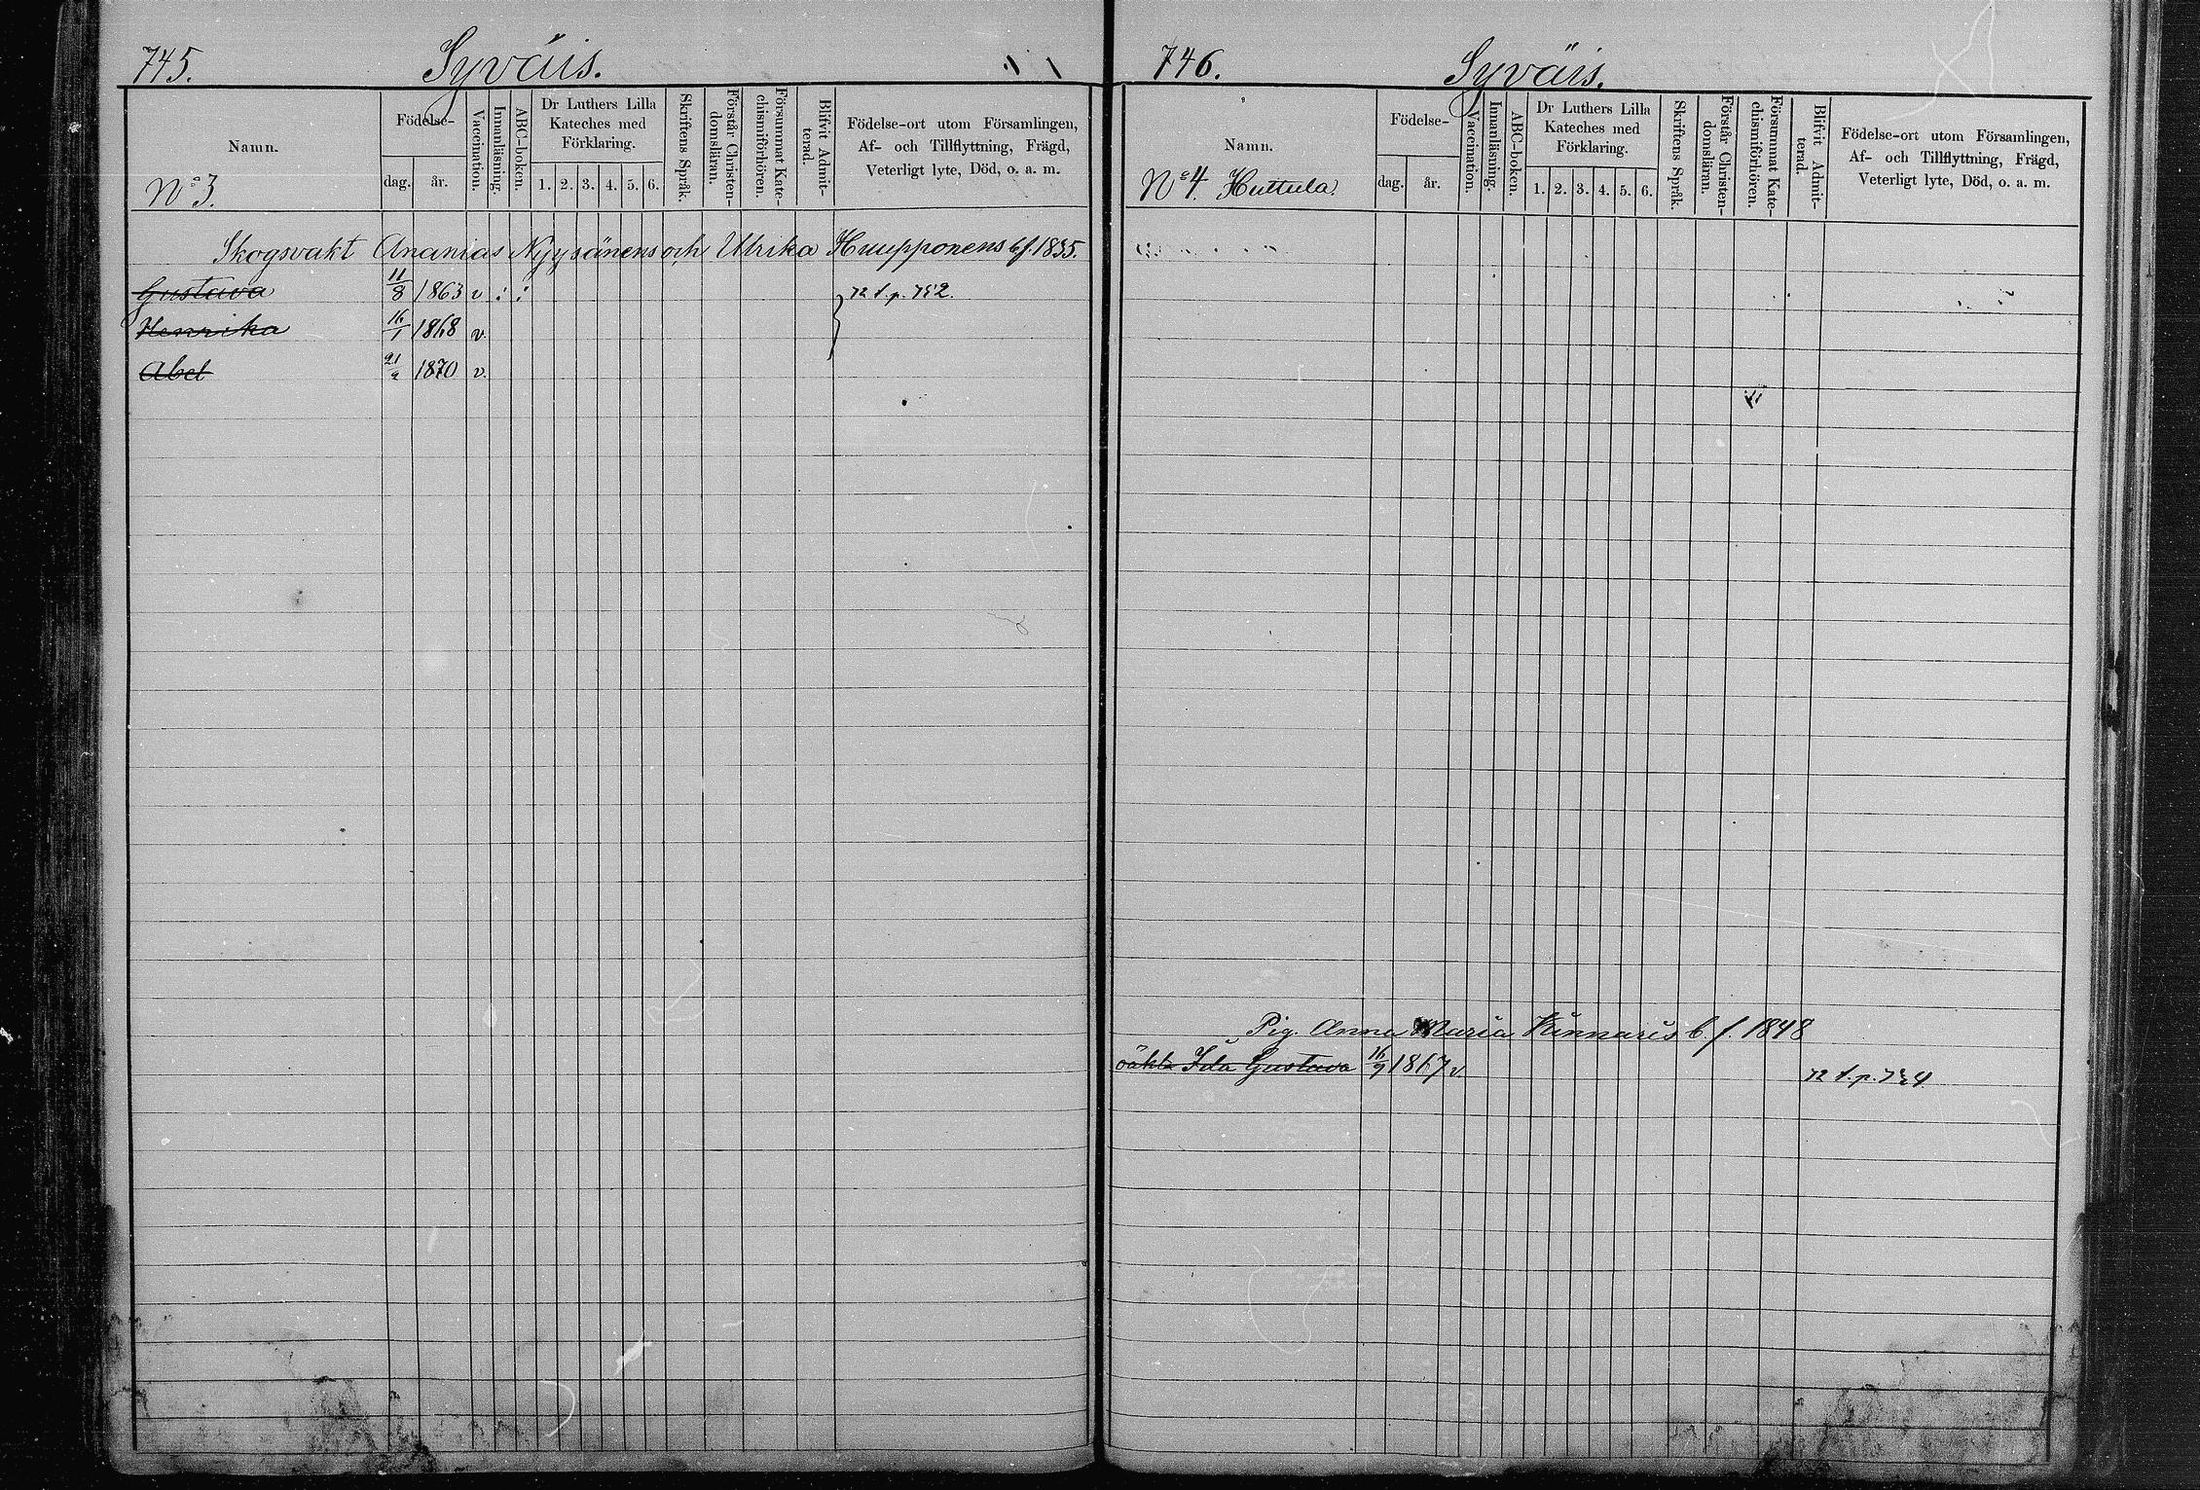 745. Syväis.
Namn. Födelse- dag. år. Vaccination. Innanläsning. ABC-boken. Dr Luthers Lilla Kateches med Förklaring. 1. 2. 3. 4. 5. 6. Skriftens Språk. Förstår Christendomsläran. Försummat Katechismiförhören. Blifvit Admitterad. Födelse-ort utom Församlingen, Af- och Tillflyttning, Frägd, Veterligt lyte, Död, o. a. m.
No 3.
Skogsvakt Ananias Nyysänens och Ulrika Huupponens b.f. 1835.
Gustava 11/8 1863 v : : 72 t. p. 752.
Henrika 16/1 1868 v.
Abel 1870 v.
746. Syväis.
Namn. Födelse- dag. år. Vaccination. Innanläsning. ABC-boken. Dr Luthers Lilla Kateches med Förklaring. 1. 2. 3. 4. 5. 6. Skriftens Språk. Förstår Christendomsläran. Försummat Katechismiförhören. Blifvit Admitterad. Födelse-ort utom Församlingen, Af- och Tillflyttning, Frägd, Veterligt lyte, Död, o. a. m.
No 4. Huttula
Pig. Anna Maria Kinnaris b. f. 1848
oäkta Ida Gustava 16/9 1867 v. 72 t. p.